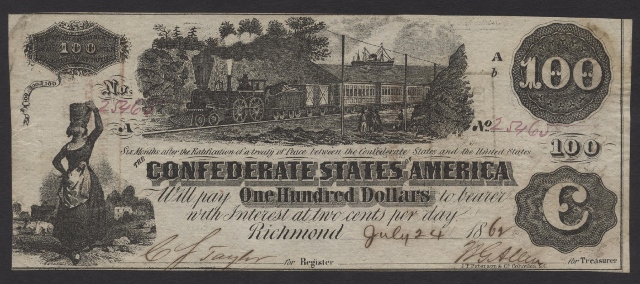 100
A
b
100
No.
25465
A
No 25465
Six Months after the Ratification of a treaty of Peace between the Confederate States and the United States
100
THE CONFEDERATE STATES OF AMERICA
Will pay One Hundred Dollars to bearer
with Interest at two cents per day
C
Richmond July 24 1862
for Register
for Treasurer